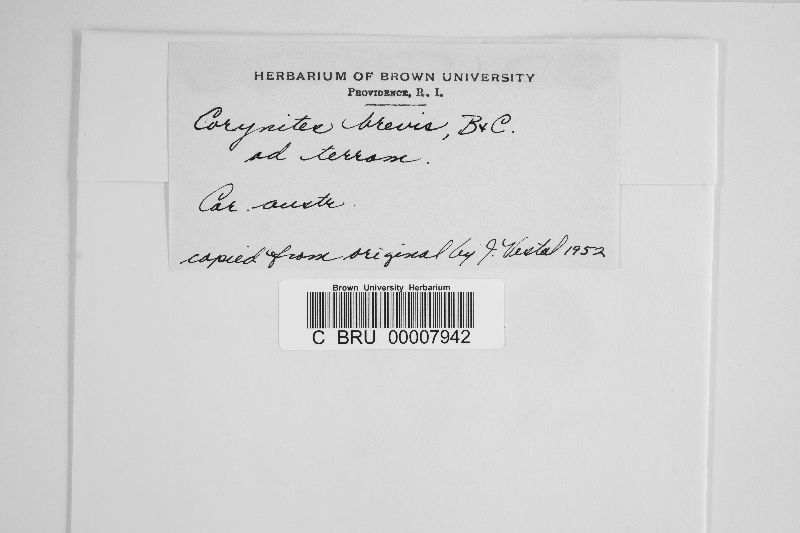 HERBARIUM OF BROWN UNIVERSITY
PROVIDENCE, R. I.
Corynites brevis, B&C.
ad terram.
Car. austr.
copied from original by J. Vestal 1952
Brown University Herbarium
C BRU 00007942